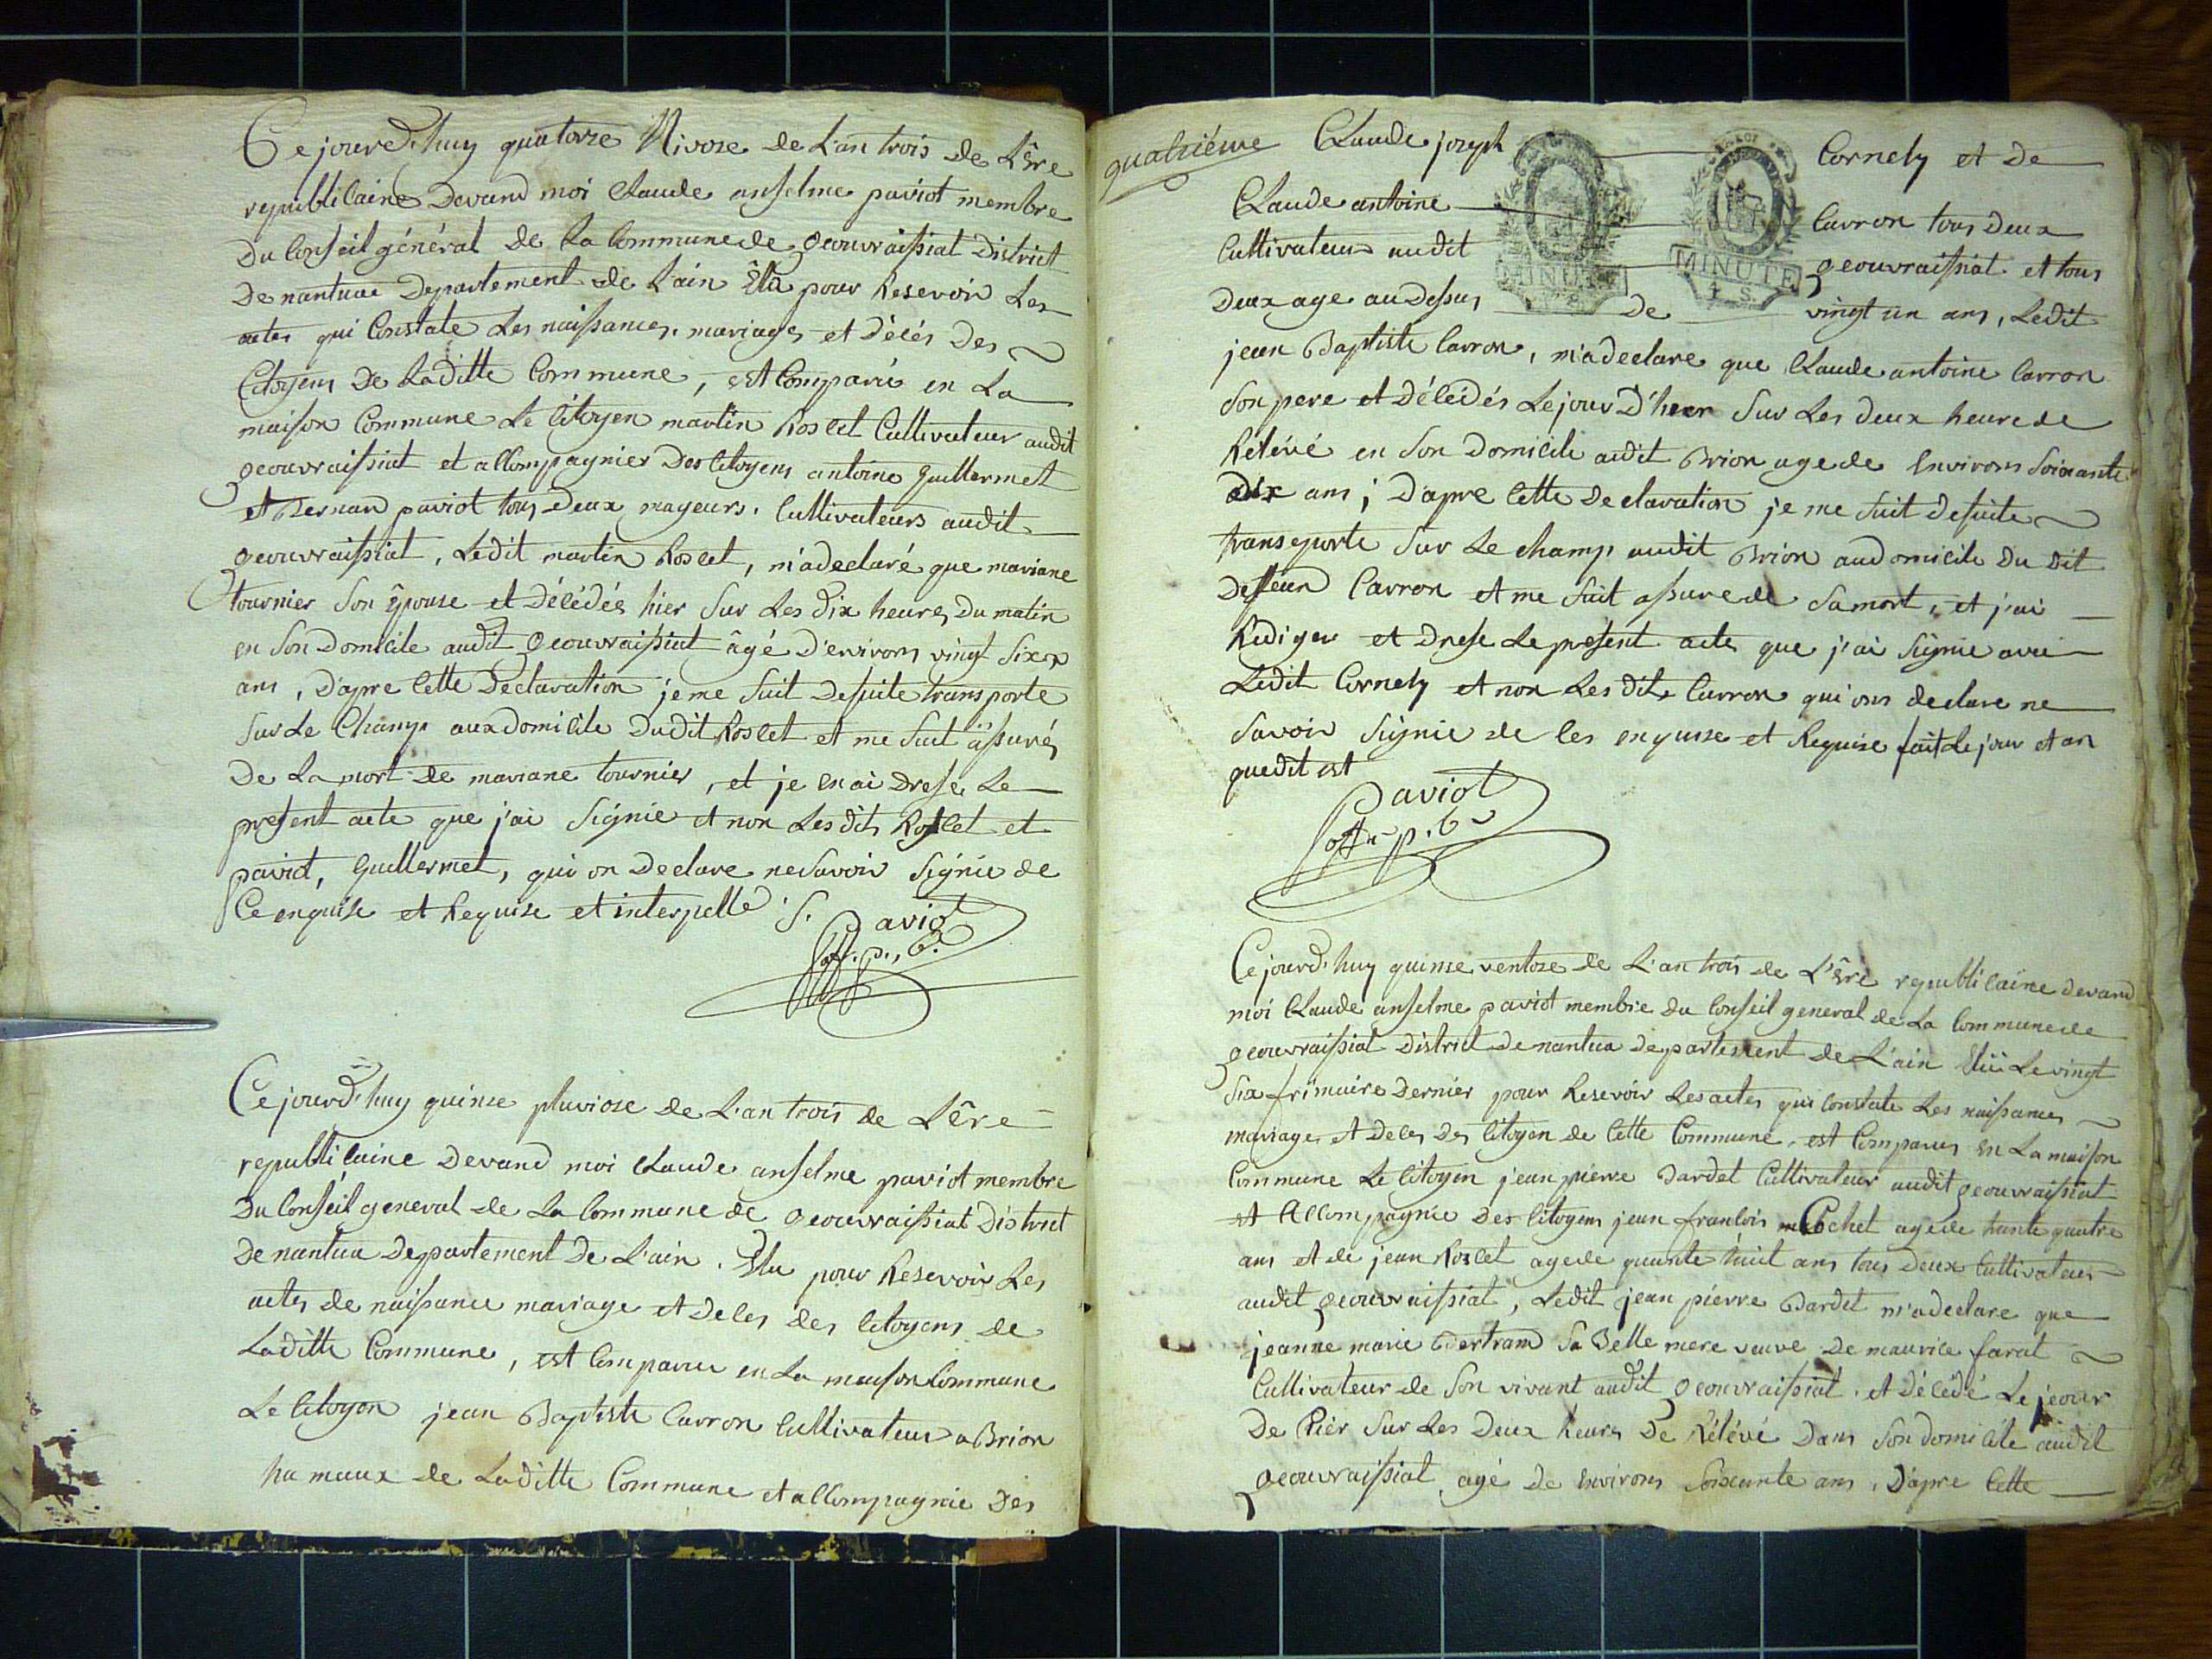 Ce jourd'huy quatorze Nivose de L'an trois de L'ère
republicaine Devand moi Claude anselme paviot membre
Du Conseil général de la Commune de geouvraissiat District
De nantua Departement de L'ain Elu pour Resevoir Les
actes qui Constate Les naissances, mariages et décés Des
Citoyens De Laditte Commune, est Comparu en La
maison Commune Le Citoyen martin Roslet Cultivateur audit
geouvraissiat et accompagnier Des Citoyens antoine guillermet
et Bernard paviot tous Deux mayeurs. Cultivateurs audit
geouvraissiat, Ledit martin Roslet, m'a declaré que mariane
tournier Son épouse et Décédée hier Sur Les Dix heures Du matin
en Son Domicile audit geouvraissiat âgé D'environs vingt Six
ans, D'apre Cette Declaration je me Suit Desuite transporte
Sur Le Champ aux Domicile Dudit Roslet et me Suit assurés
De La mort de mariane tournier, et je en ai Dresse Le
present acte que j'ai Signie et non Les dits Roslet et
paviot, guillermet, qui on Declare ne Savoir Signie de
Ce enquise et Requise et interpelle. S. Paviot
off. p., b.
Ce jourd'huy quinse pluviose de L'an trois de L'êre
republicaine Devand moi Claude anselme paviot membre
Du Conseil general de La Commune de geouvraissiat District
De nantua Departement De L'ain. Elu pour Resevoir Les
actes de naissance mariage et Deces des Citoyens de
Laditte Commune, est Comparu en La maison Commune
Le Citoyen jean Baptiste Carron Cultivateur a Brion
hamaux de Laditte Commune et accompagnie Des
quatriéme Claude joseph Cornely et De
Claude antoine Carron tous Deux
Cultivateur audit geouvraissiat et tous
Deux age au Dessus De vingt un ans, Ledit
MINUTE
MINUTE
jean Baptiste Carron, m'a declare que Claude antoine Carron
Son pere et Décédés Le jour D'hier Sur Les deux heure de
Rélévé en Son Domicile audit Brion age de Environs Soixante
dix ans; D'apre Cette Declaration je me Suit desuite
transporte Sur Le champ audit Brion au domicile Du Dit
Deffeun Carron et me Suit assure de Sa mort, et j'ai
Rediger et Dresse Le present acte que j'ai Signie avec
Ledit Cornely et non Les dits Carron qui ons declare ne
Savoir Signie de Ces enquise et Requise fait Le jour et an
que dit est
Paviot
off. p. b
Ce jourd'huy quinse ventose de L'an trois de L'ère republicaine devand
moi Claude anselme paviot membre du Conseil general de La Commune de
geouvraissiat District de nantua departement de L'ain Elü Le vingt
Six frimaire Dernier pour Resevoir Les actes qui Constate Les naissances
mariage et Deces Des Citoyen de Cette Commune, est Comparus en La maison
Commune Le Citoyen jean pierre Dardet Cultivateur audit geouvraissiat
et Accompagnie Des Citoyens jean francois Cochet age de trante quatre
ans et de jean Roslet age de quarante huit ans tous Deux Cultivateur
audit geouvraissiat, Ledit jean pierre Dardet m'a declare que
jeanne marie Bertrand Sa Belle mere veuve De maurice farat
Cultivateur de Son vivant audit geouvraissiat. et Décédé Le jeour
De hier Sur Les Deux heures De Rélévé Dans Son domicile audit
geouvraissiat agé de Environs Soixante ans, D'apre Cette